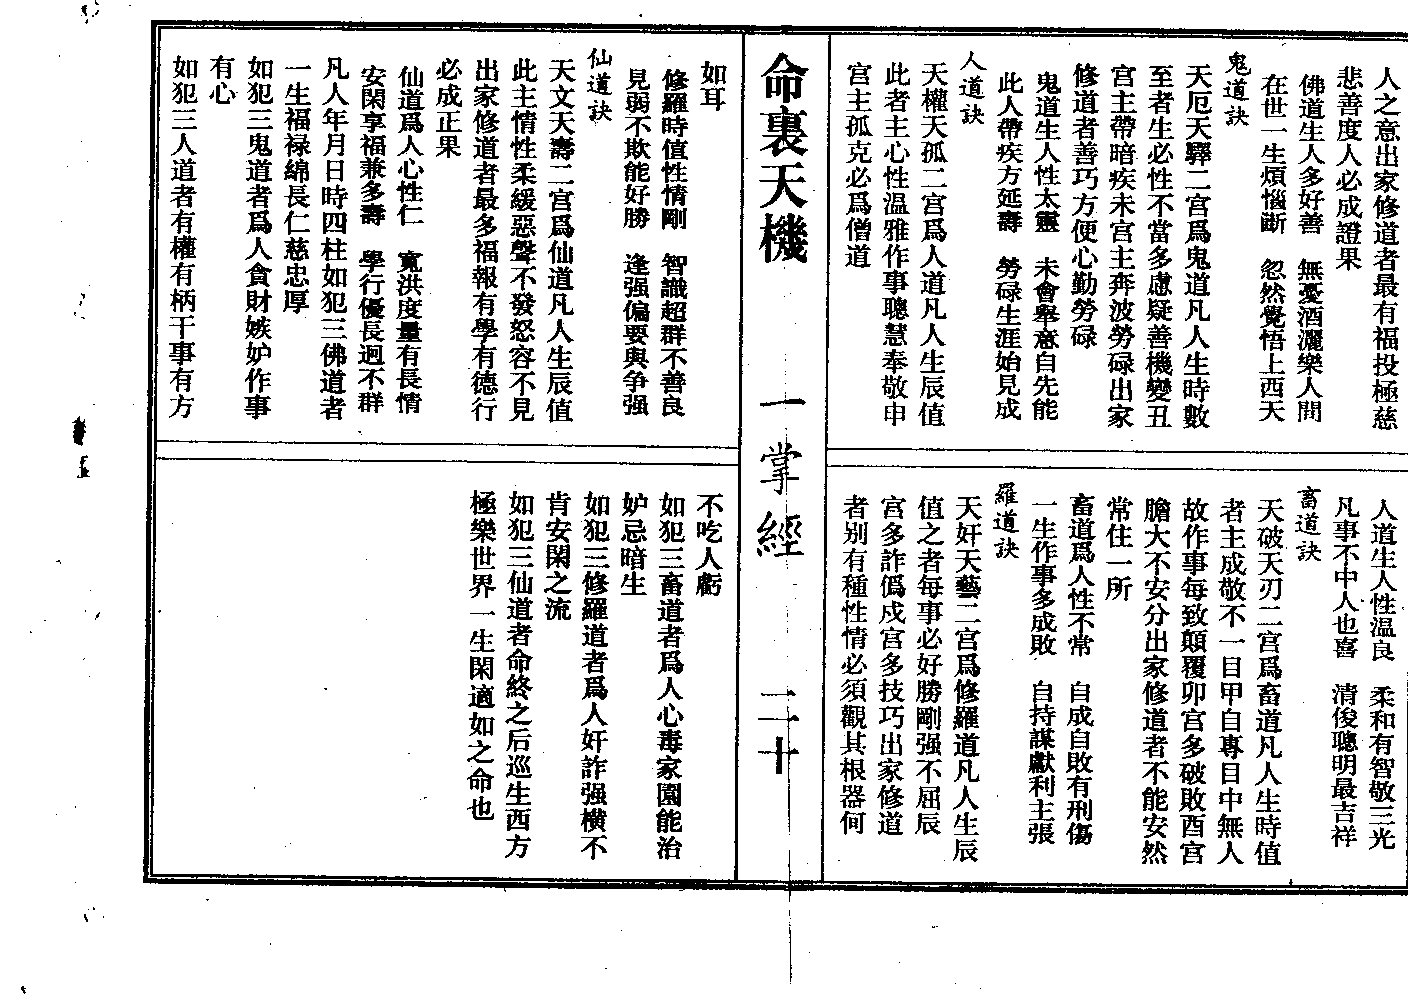 人之意出家修道者最有福投極慈
悲善度人必成證果
佛道生人多好善　無憂酒灑樂人間
在世一生煩惱斷　忽然覺悟上西天
鬼道訣
天厄天驛二宮爲鬼道凡人生時數
至者生必性不當多慮疑善機變丑
宮主帶暗疾未宮主奔波勞碌出家
修道者善巧方便心勤勞碌
鬼道生人性太靈　未會舉意自先能
此人帶疾方延壽　勞碌生涯始見成
人道訣
天權天孤二宮爲人道凡人生辰值
此者主心性温雅作事聰慧奉敬申
宮主孤克必爲僧道
人道生人性温良　柔和有智敬三光
凡事不中人也喜　清俊聰明最吉祥
畜道訣
天破天刃二宮爲畜道凡人生時值
者主成敬不一目甲自專目中無人
故作事每致顛覆卯宮多破敗酉宮
膽大不安分出家修道者不能安然
常住一所
畜道爲人性不常　自成自敗有刑傷
一生作事多成敗　自持謀獻利主張
羅道訣
天奸天藝二宮爲修羅道凡人生辰
值之者每事必好勝剛强不屈辰
宮多詐僞戍宮多技巧出家修道
者别有種性情必須觀其根器何
命裏天機　一掌經　二十
如耳
修羅時值性情剛　智識超群不善良
見弱不欺能好勝　逢强偏要與争强
仙道訣
天文天壽二宮爲仙道凡人生辰值
此主情性柔緩惡聲不發怒容不見
出家修道者最多福報有學有德行
必成正果
仙道爲人心性仁　寬洪度量有長情
安閑享福兼多壽　學行優長迥不群
凡人年月日時四柱如犯三佛道者
一生福禄綿長仁慈忠厚
如犯三鬼道者爲人貪財嫉妒作事
有心
如犯三人道者有權有柄干事有方
不吃人虧
如犯三畜道者爲人心毒家園能治
妒忌暗生
如犯三修羅道者爲人奸詐强横不
肯安閑之流
如犯三仙道者命終之后巡生西方
極樂世界一生閑適如之命也